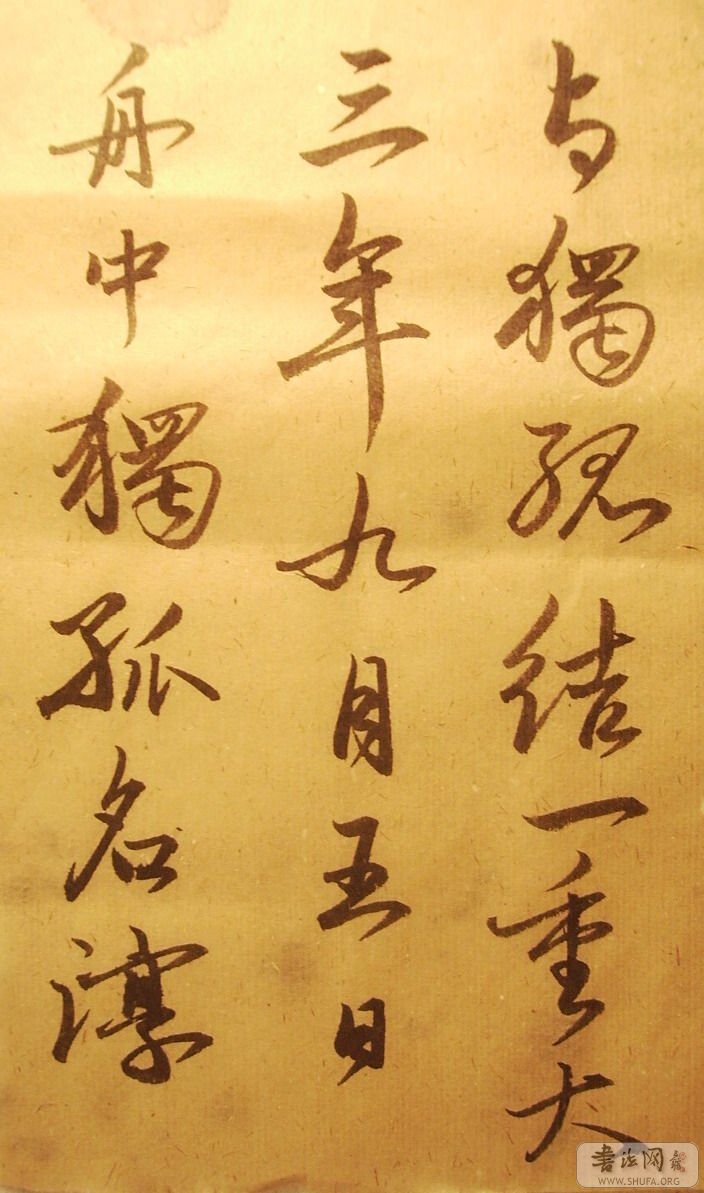 与獨孤結一重大
三年九月五日
舟中獨孤名淳
書法网
WWW.SHUFA.ORG